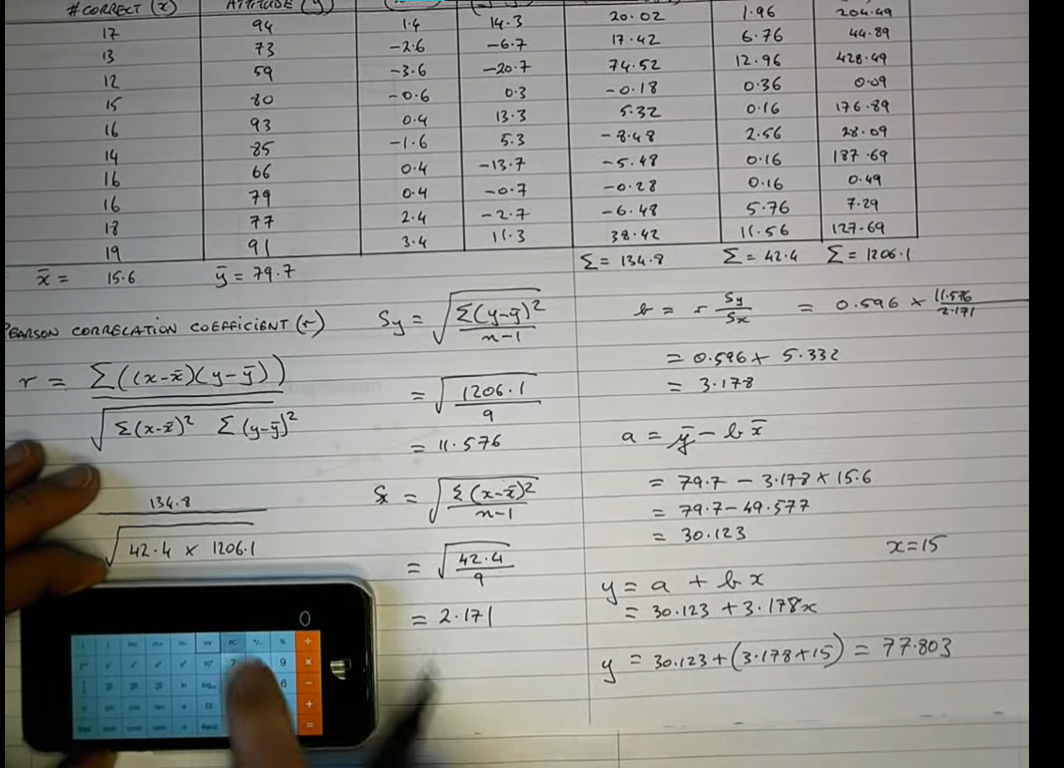 #CORRECT (x) ATTITUDE (y)
17 94 1.4 14.3 20.02 1.96 204.49
13 73 -2.6 -6.7 17.42 6.76 44.89
12 59 -3.6 -20.7 74.52 12.96 428.49
15 80 -0.6 0.3 -0.18 0.36 0.09
16 93 0.4 13.3 5.32 0.16 176.89
14 85 -1.6 5.3 -8.48 2.56 28.09
16 66 0.4 -13.7 -5.48 0.16 187.69
16 79 0.4 -0.7 -0.28 0.16 0.49
18 77 2.4 -2.7 -6.48 5.76 7.29
19 91 3.4 11.3 38.42 11.56 127.69
x̄ = 15.6 ȳ = 79.7 Σ = 134.8 Σ = 42.4 Σ = 1206.1
PEARSON CORRELATION COEFFICIENT (r)
r = Σ((x-x̄)(y-ȳ))
√Σ(x-x̄)² Σ(y-ȳ)²
134.8
√42.4 × 1206.1
Sy = √Σ(y-ȳ)²
n-1
= √1206.1
9
= 11.576
Sx = √Σ(x-x̄)²
n-1
= √42.4
9
= 2.171
b = r Sy/Sx = 0.596 × 11.576/2.171
= 0.596 × 5.332
= 3.178
a = ȳ - b x̄
= 79.7 - 3.178 × 15.6
= 79.7 - 49.577
= 30.123
x=15
y = a + bx
= 30.123 + 3.178x
y = 30.123 + (3.178×15) = 77.803
0
7 9 ×
6 -
+
=